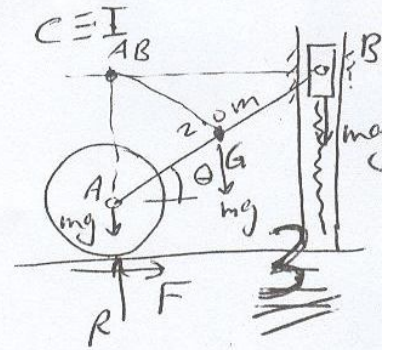 C ≡ I
AB
B
2.0m
mg
G
A
θ
mg
mg
F
R
3